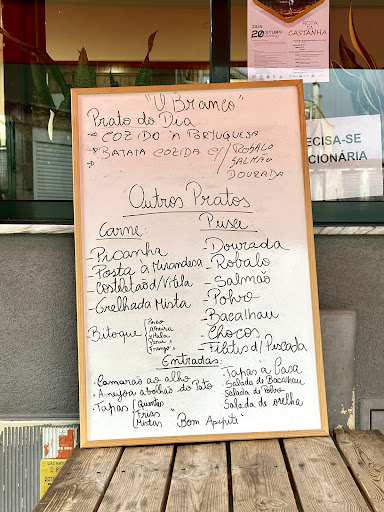 "U Branco"
Prato do Dia
COZIDO À PORTUGUESA
BATATA COZIDA C/ ROBALO
SALMÃO
DOURADA
Outros Pratos
Carne:
- Picanha
- Posta à Mirandesa
- Costeletão d/Vitela
- Grelhada Mista
Bitoque
Porco
Alheira
Vitela
Peru
Frango
Peixe:
- Dourada
- Robalo
- Salmão
- Polvo
- Bacalhau
- Chocos
- Filetes d/ Pescada
Entradas:
- Camarão ao alho
- Ameijoa a bolhão do Pato
- Tapas
Quentes
Frias
Mistas
- Tapas á Casa
Salada de Bacalhau
Salada de Polvo
Salada de orelha
"Bom Apetite"
20 OUTUBRO
ROTA DA CASTANHA
RECISA-SE
CIONÁRIA